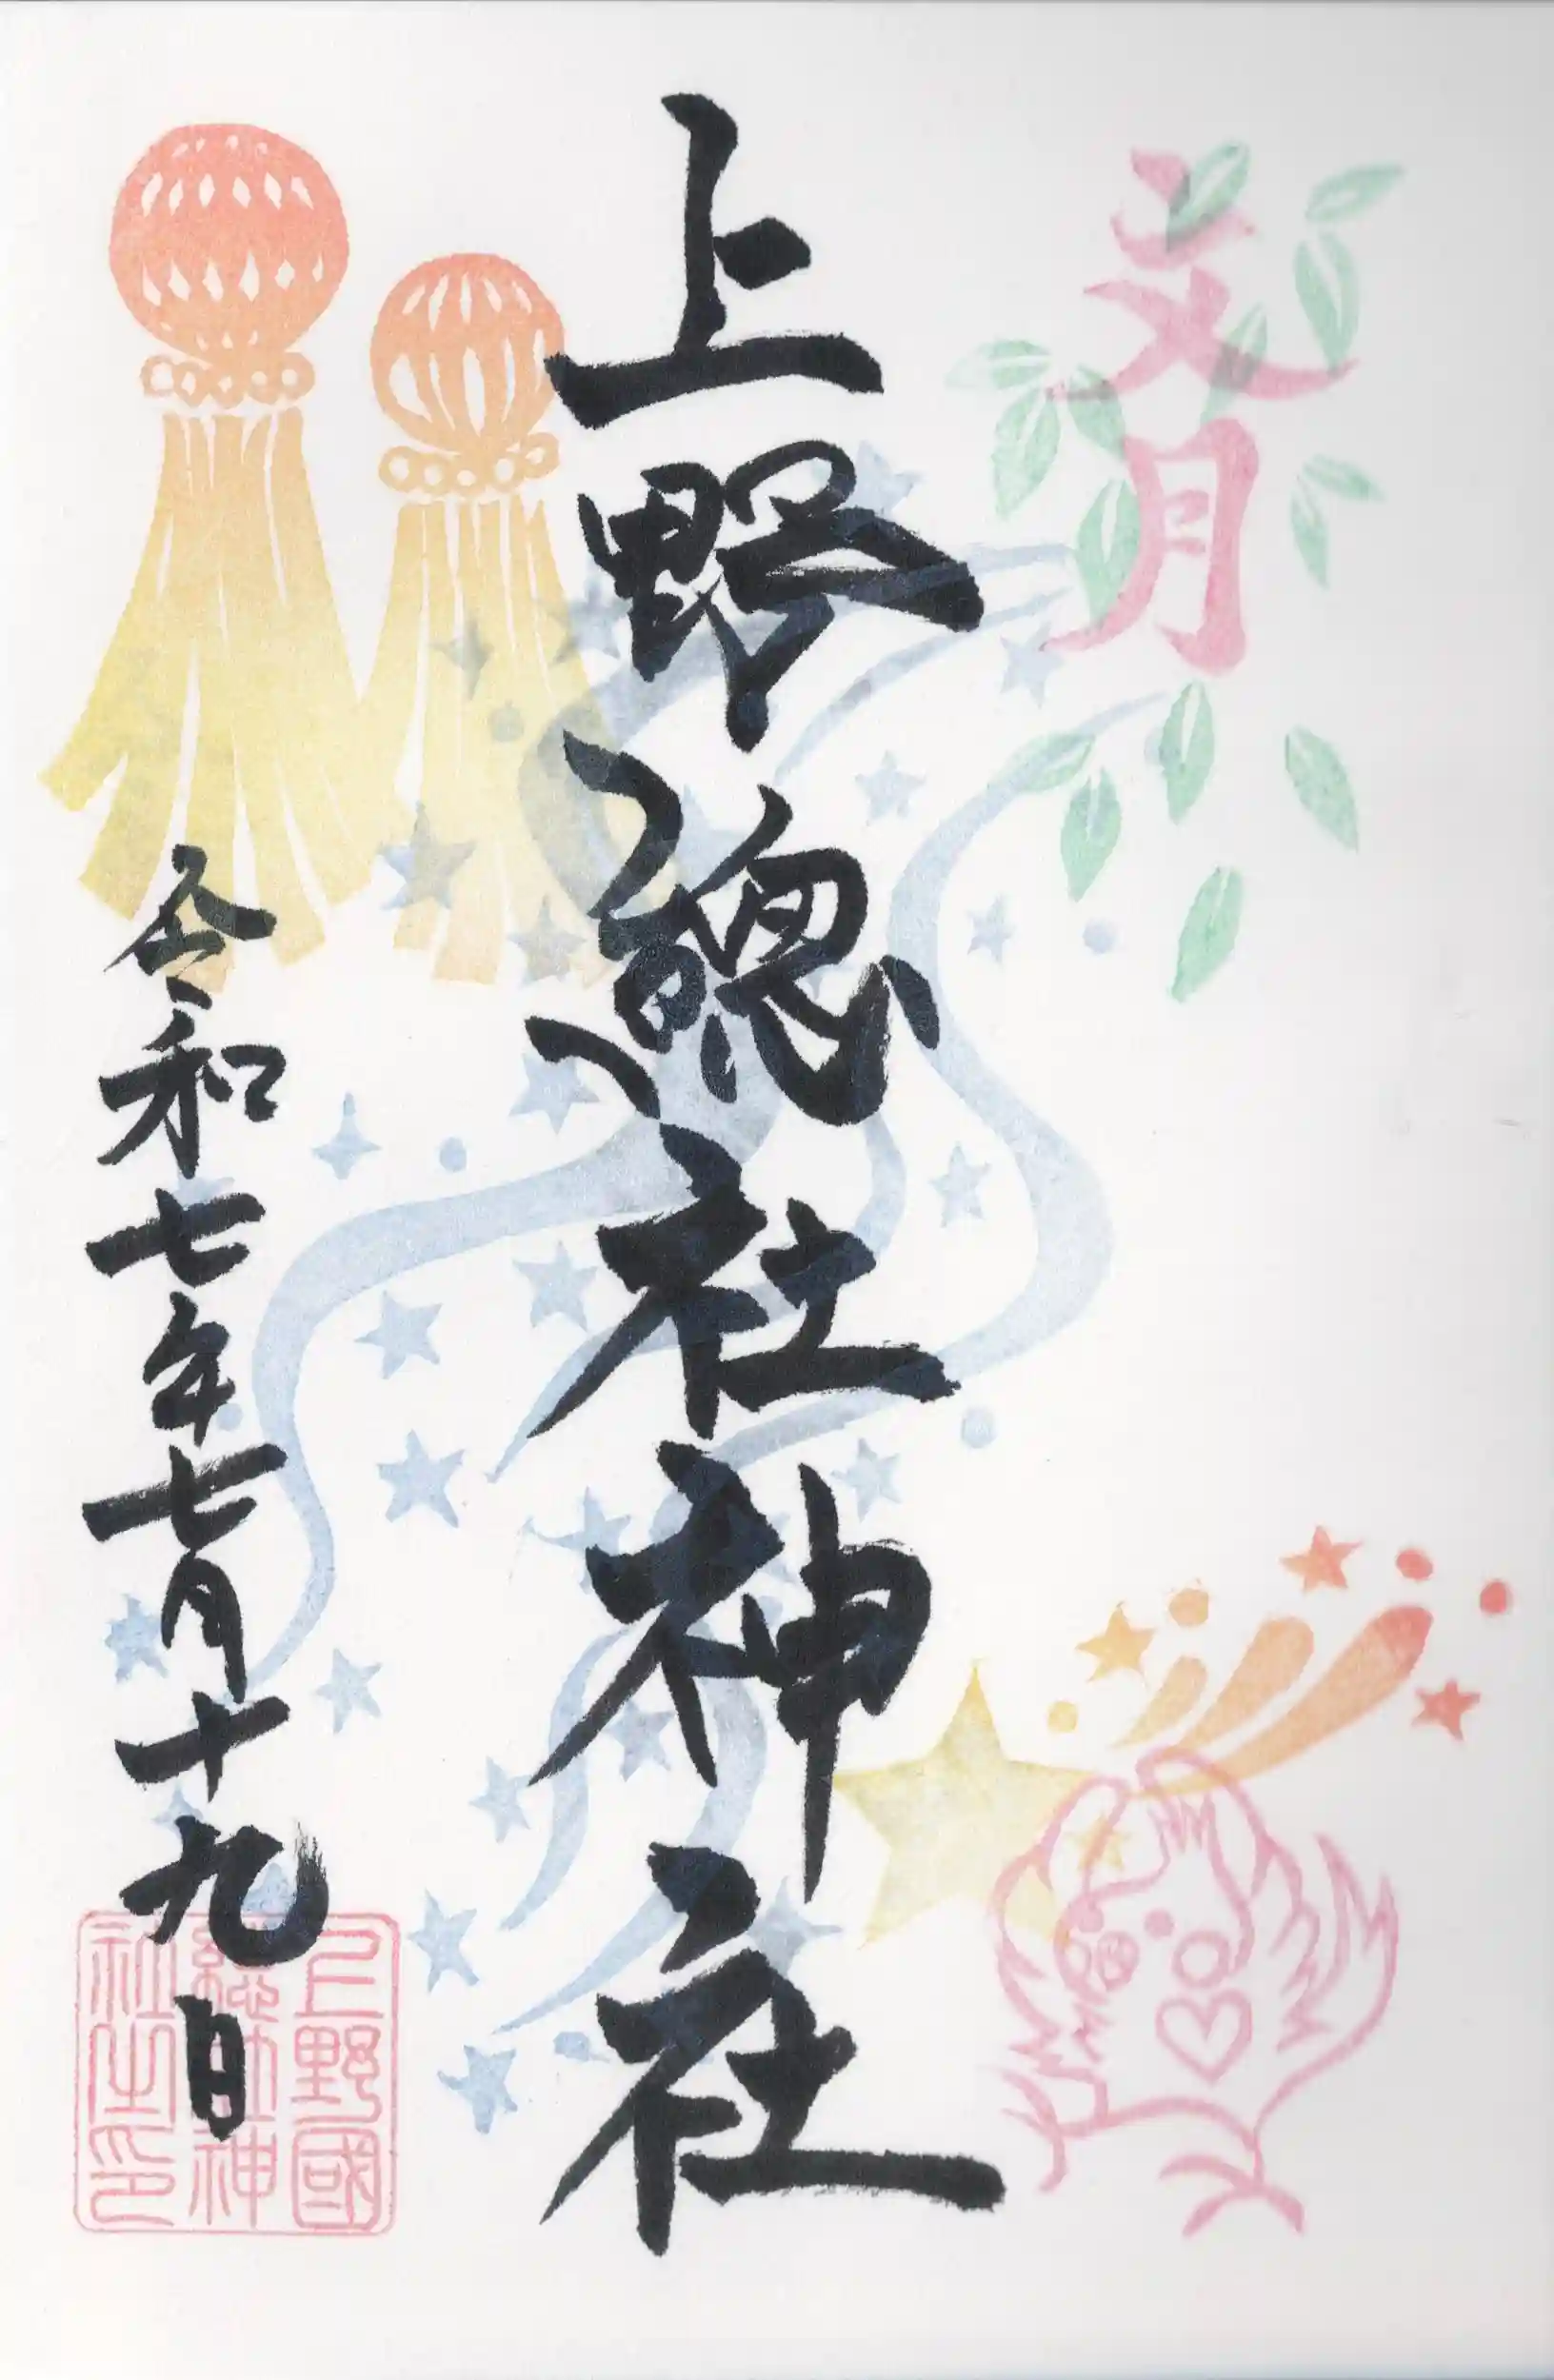 文月
上野總社神社
令和七年七月十九日
上野國
総社神
社之印